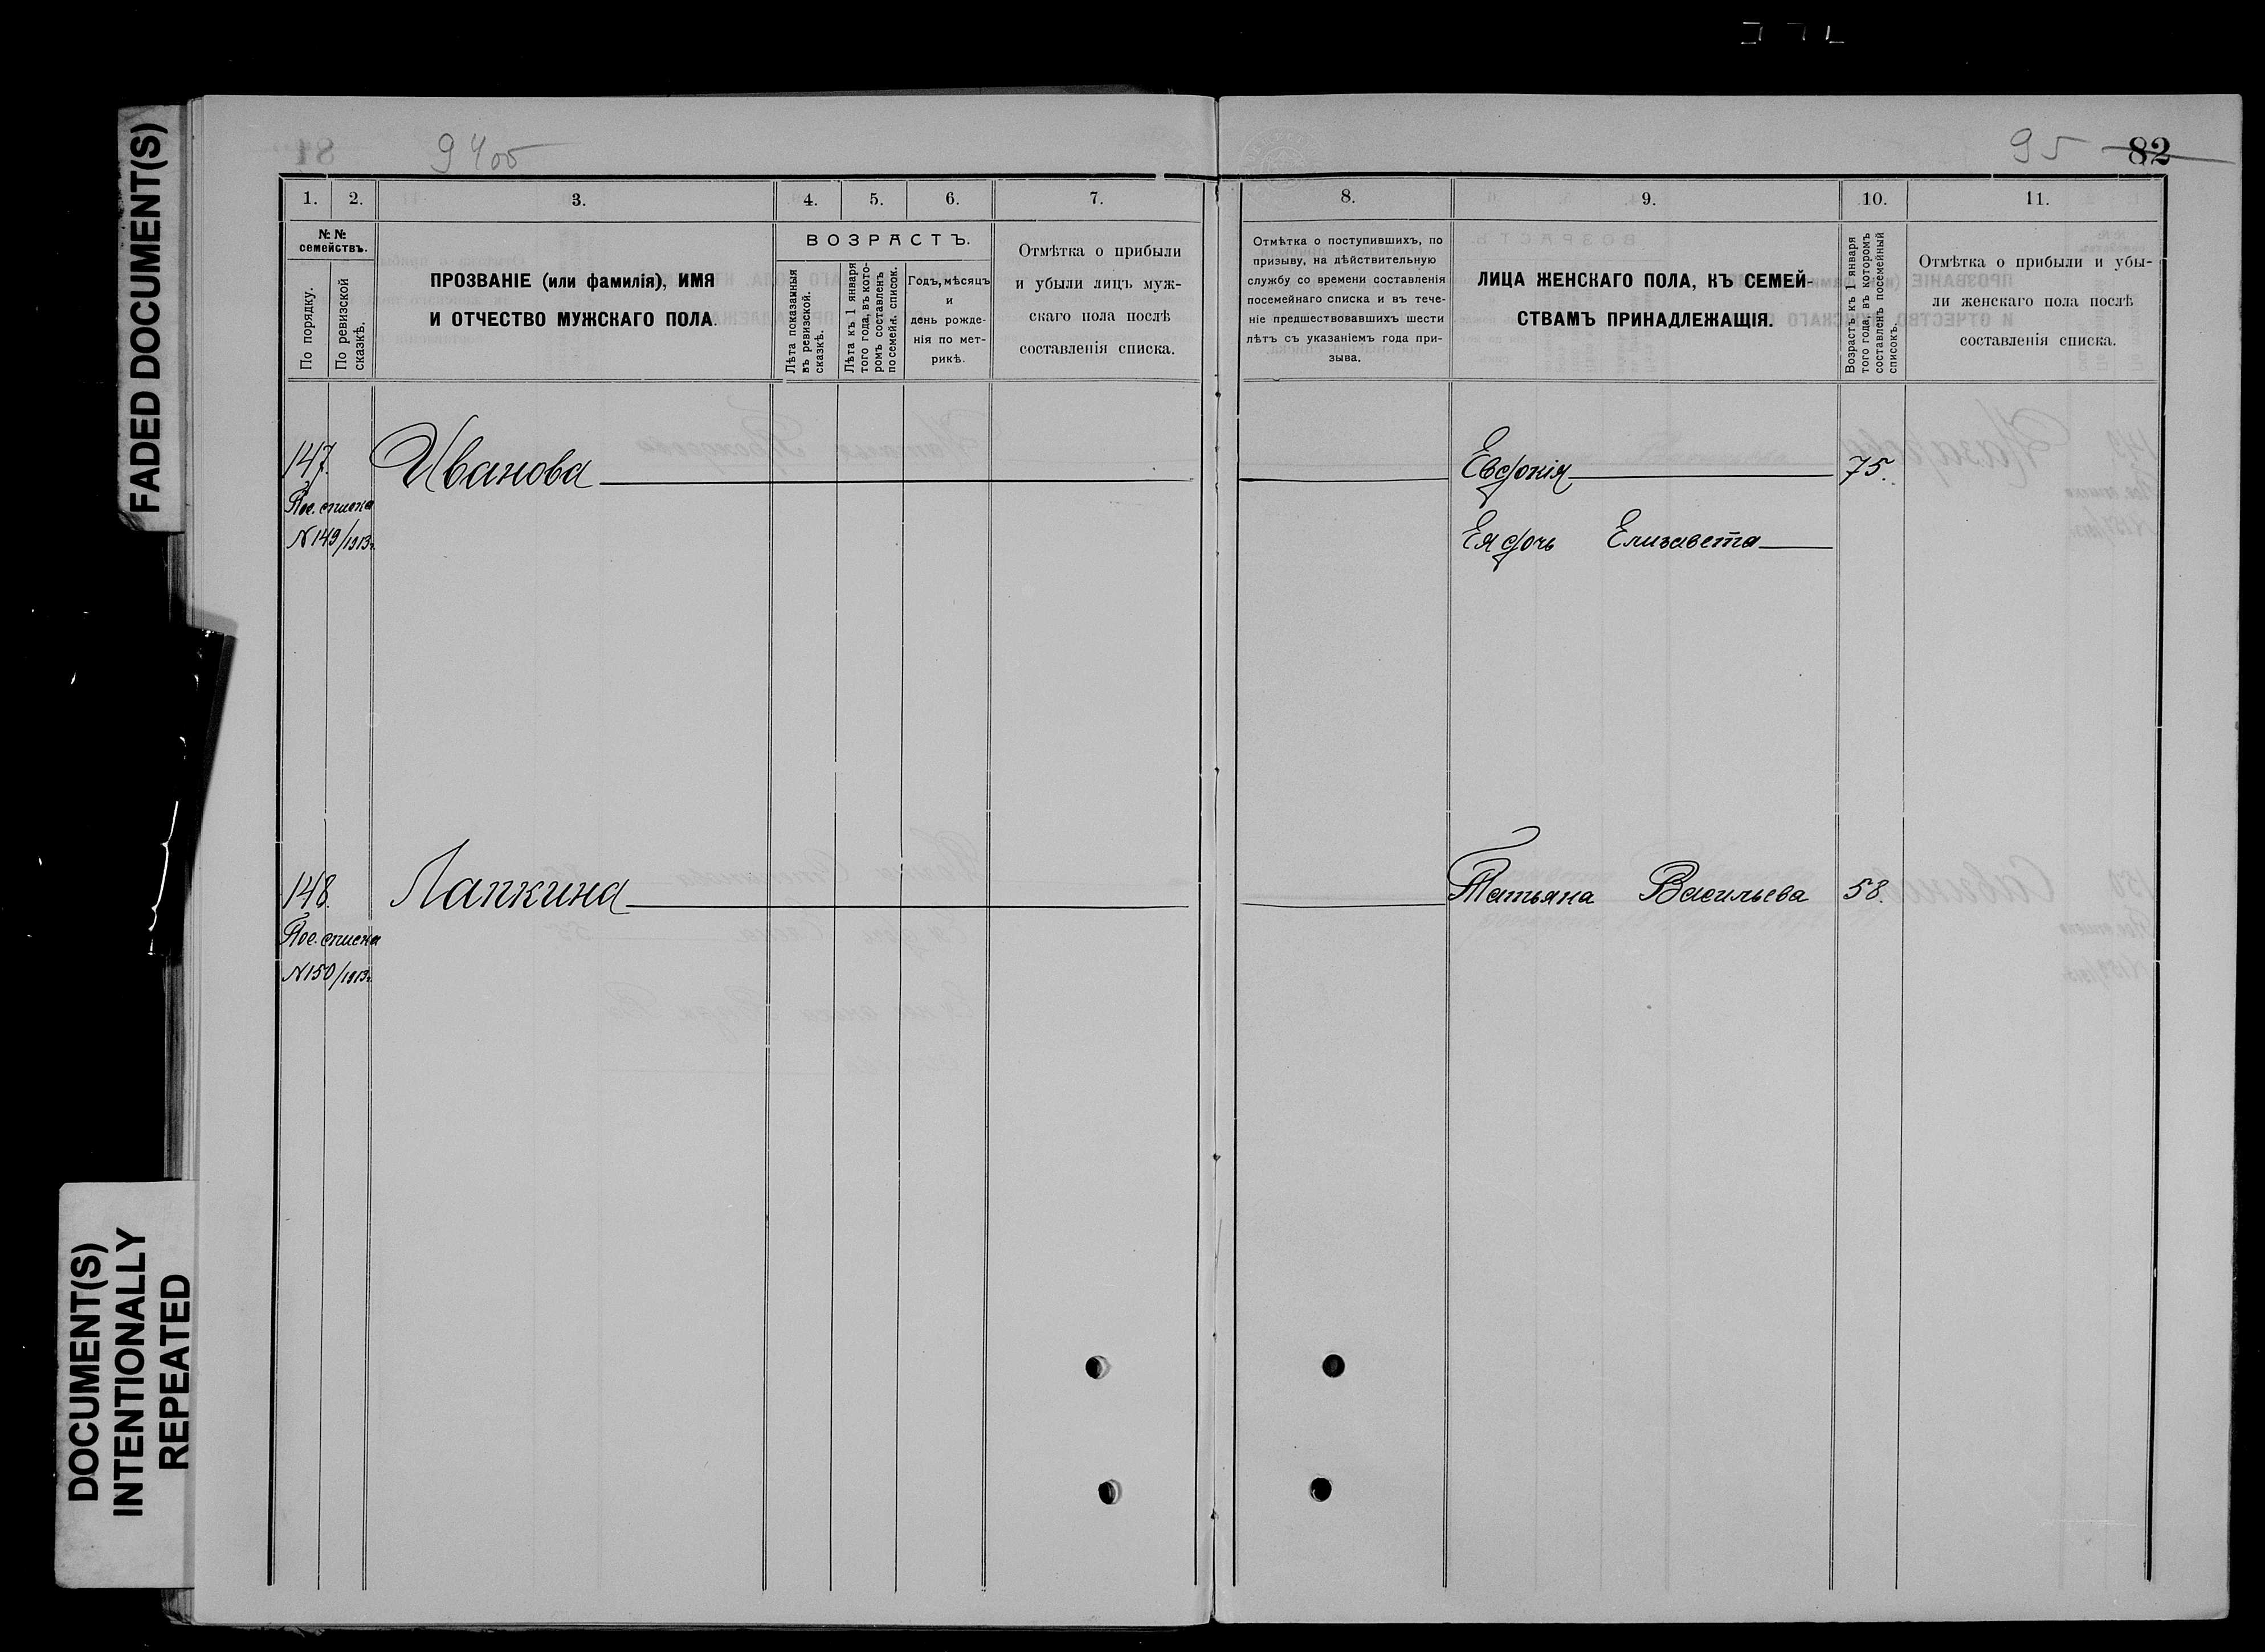 FADED DOCUMENT(S)
DOCUMENT(S)
INTENTIONALLY
REPEATED
94об
1.
2.
3.
4.
5.
6.
7.
№ №
семействъ.
По порядку.
По ревизской
сказкѣ.
ПРОЗВАНІЕ (или фамилія), ИМЯ
И ОТЧЕСТВО МУЖСКАГО ПОЛА.
ВОЗРАСТЪ.
Лѣта показанныя
въ ревизской.
сказкѣ.
Лѣта къ 1 января
того года, въ кото-
ромъ составленъ
посемейн. список.
Годъ, мѣсяцъ
и
день рожде-
нія по мет-
рикѣ.
Отмѣтка о прибыли
и убыли лицъ муж-
скаго пола послѣ
составленія списка.
147.
Иванова
Пос. списка
N 149/1913г.
148.
Лапкина
Пос. списка
N 150/1913г.
95
82
8.
9.
10.
11.
Отмѣтка о поступившихъ, по
призыву, на дѣйствительную
службу со времени составленія
посемейнаго списка и въ тече-
ніе предшествовавшихъ шести
лѣтъ съ указаніемъ года при-
зыва.
ЛИЦА ЖЕНСКАГО ПОЛА, КЪ СЕМЕЙ-
СТВАМЪ ПРИНАДЛЕЖАЩІЯ.
Возрастъ къ 1 января
того года, въ которомъ
составленъ посемейный
списокъ.
Отмѣтка о прибыли и убы-
ли женскаго пола послѣ
составленія списка.
Евдокія 75.
Ея дочь Елизавета
Татьяна Васильева 58.